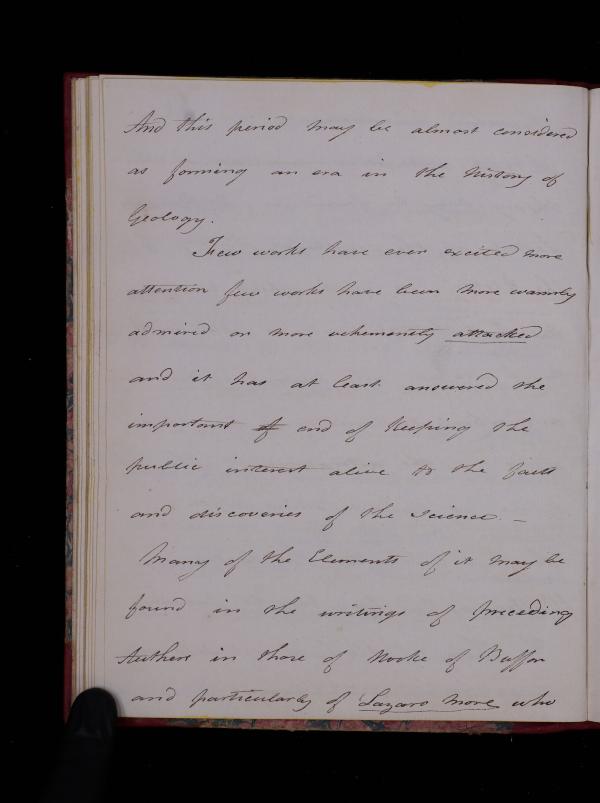 And this period may be almost considered
as forming an era in the history of
Geology.
Few works have ever excited more
attention few works have been more warmly
admired or more vehemently attacked
and it has at least answered the
important of end of keeping the
public interest alive to the facts
and discoveries of the science. —
Many of the Elements of it may be
found in the writings of preceding
Authors in those of Hooke of Buffon
and particularly of Lazaro Moro who